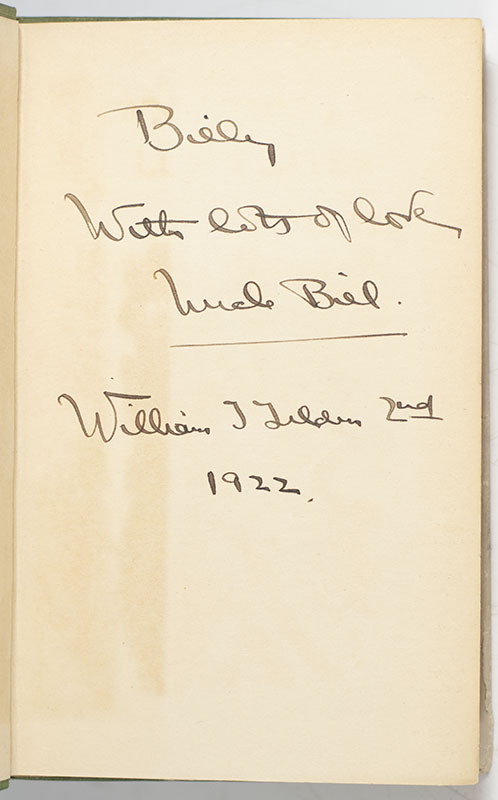 Billy
With lots of love
Uncle Bill.
William T Tilden 2nd
1922.